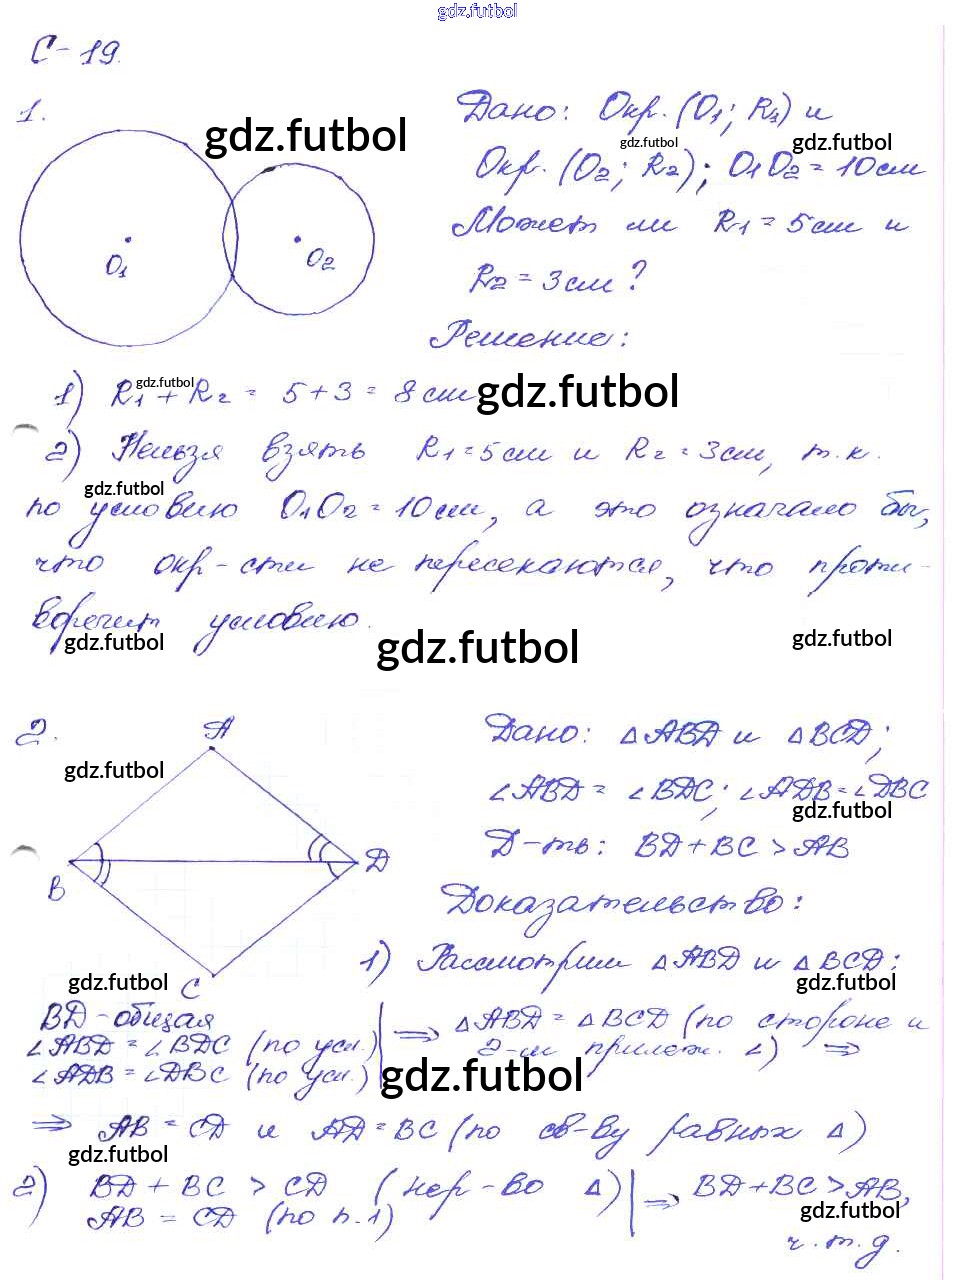 gdz.futbol
С-19.
1.
gdz.futbol
O1
O2
Дано: Окр. (O1; R1) и
gdz.futbol
gdz.futbol
Окр. (O2; R2); O1O2 = 10 см
Может ли R1 = 5 см и
R2 = 3 см?
Решение:
gdz.futbol
1) R1 + R2 = 5 + 3 = 8 см
gdz.futbol
2) Нельзя взять R1 = 5 см и R2 = 3 см, т.к.
gdz.futbol
по условию O1O2 = 10 см, а это означало бы,
что окр-сти не пересекаются, что проти-
воречит условию.
gdz.futbol
gdz.futbol
gdz.futbol
2.
A
B
D
C
gdz.futbol
Дано: △ABD и △BCD;
∠ABD = ∠BDC; ∠ADB = ∠DBC
gdz.futbol
Д-ть: BD + BC > AB
Доказательство:
1) Рассмотрим △ABD и △BCD:
gdz.futbol
gdz.futbol
BD - общая
∠ABD = ∠BDC (по усл.)
∠ADB = ∠DBC (по усл.)
⇒ △ABD = △BCD (по стороне и
2-м прилеж. ∠) ⇒
gdz.futbol
⇒ AB = CD и AD = BC (по св-ву равных △)
gdz.futbol
2) BD + BC > CD (нер-во △)
AB = CD (по п.1)
⇒ BD + BC > AB,
gdz.futbol
ч.т.д.